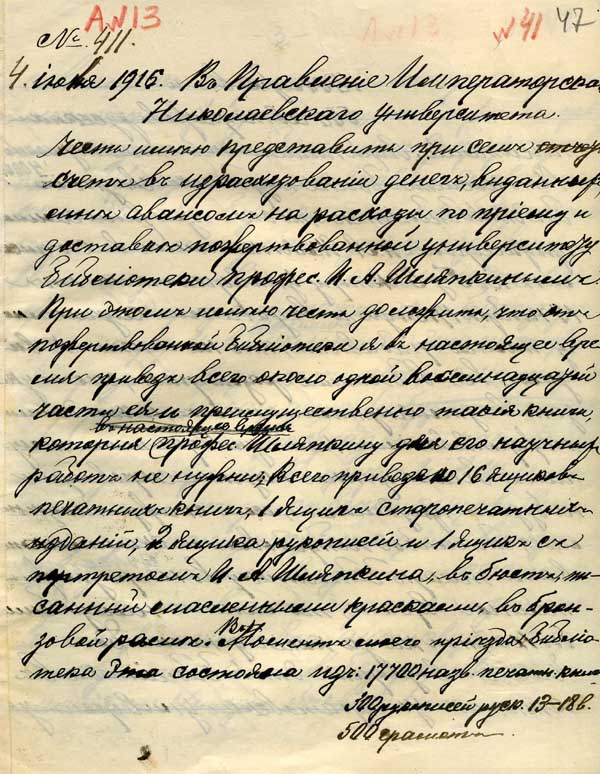 А№13 А№13 №41 47
№ 411.
4 іюня 1915. Въ Правленіе Императорска
Николаевскаго университета.
Честь имѣю представить при семъ
счетъ въ израсходованіи денегъ, выданныхъ
мнѣ авансомъ на расходы по пріему и
доставкѣ пожертвованной университету
библіотеки профес. И. А. Шляпкинымъ.
При этомъ имѣю честь доложить, что изъ
пожертвованной библіотеки я въ настоящее вре-
мя привезъ всего около одной восемнадцатой
части ея и преимущественно такія книги,
въ настоящее время
которыя профес Шляпкину для его научныхъ
работъ не нужны. Всего привезено 16 ящиковъ
печатныхъ книгъ, 1 ящикъ старопечатныхъ
изданій, 2 ящика рукописей и 1 ящикъ съ
портретомъ И. А. Шляпкина, въ бюстъ, пи-
санный масленными красками, въ брон-
зовой рамѣ. Въ моментъ моего пріѣзда библіо-
тека эта состояла изъ: 17700 назв. печатн. книг
300 рукописей русск. 13-18 в.
500 грамотъ